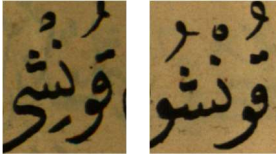 قُونْشُو قُونْشِى